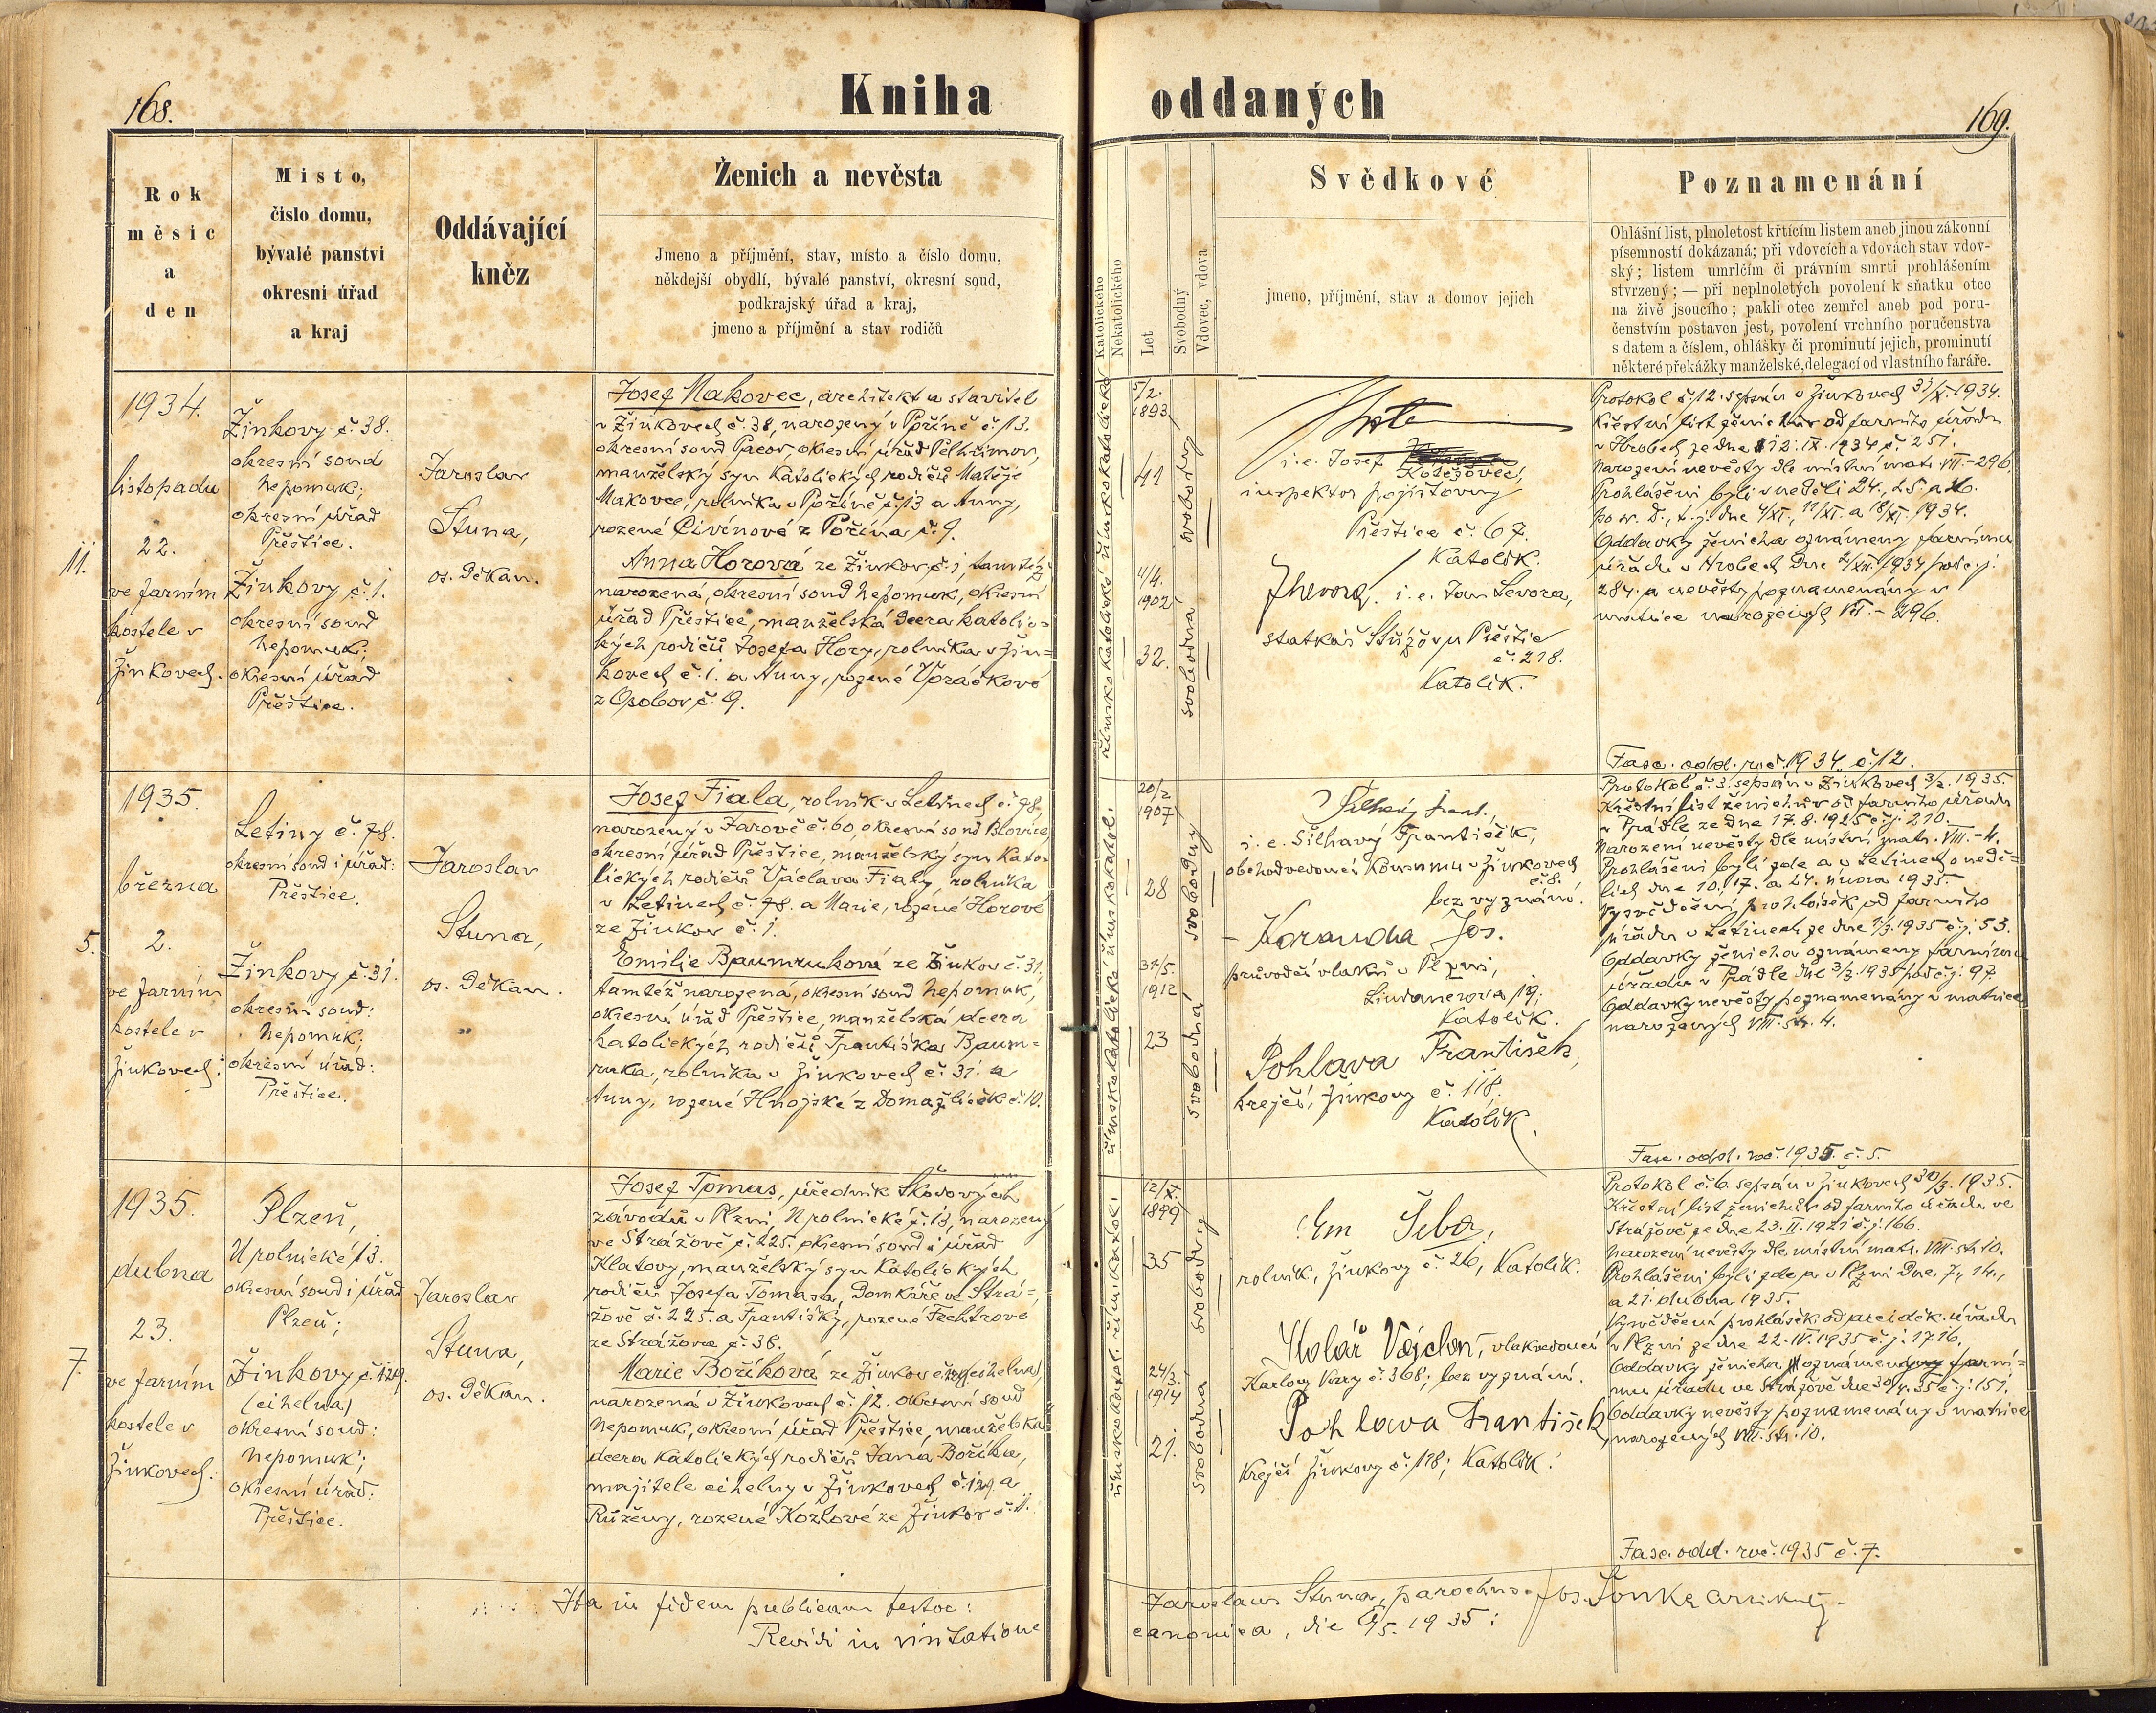 168.
Kniha
Rok
měsíc
a
den
Místo,
číslo domu,
bývalé panství
okresní úřad
a kraj
Oddávající
kněz
Ženich a nevěsta
Jmeno a příjmění, stav, místo a číslo domu,
někdejší obydlí, bývalé panství, okresní soud,
podkrajský úřad a kraj,
jmeno a příjmění a stav rodičů
11.
1934.
listopadu
22.
ve farním
kostele v
Žinkovech.
Žinkovy č. 38.
okresní soud
Nepomuk;
okresní úřad
Přeštice.
Žinkovy č. 1.
okresní soud
Nepomuk;
okresní úřad
Přeštice.
Jaroslav
Stuna,
os. Děkan.
Josef Makovec, architekt a stavitel
v Žinkovech č. 38, narozený v Poříně č. 13.
okresní soud Pacov, okresní úřad Pelhřimov,
manželský syn katolických rodičů Matěje
Makovce, rolníka v Poříně č. 13 a Anny,
rozené Civínové z Pořína č. 9.
Anna Horová ze Žinkov č. 1, tamtéž
narozená, okresní soud Nepomuk, okresní
úřad Přeštice, manželská dcera katolic-
kých rodičů Josefa Hory, rolníka v Žin-
kovech č. 1. a Anny, rozené Vpráškové
z Osobov č. 9.
5.
1935.
března
2.
ve farním
kostele v
Žinkovech.
Letiny č. 78.
okresní soud i úřad:
Přeštice.
Žinkovy č. 31.
okresní soud:
Nepomuk;
okresní úřad:
Přeštice.
Jaroslav
Stuna,
os. Děkan.
Josef Fiala, rolník v Letinech č. 78,
narozený v Žarově č. 60, okresní soud Blovice
okresní úřad Přeštice, manželský syn kato-
lických rodičů Václava Fialy, rolníka
v Letinech č. 78. a Marie, rozené Horové
ze Žinkov č. 1.
Emilie Baumruková ze Žinkov č. 31,
tamtéž narozená, okresní soud Nepomuk,
okresní úřad Přeštice, manželská dcera
katolických rodičů Františka Baum-
ruka, rolníka v Žinkovech č. 31. a
Anny, rozené Hnojské z Domažliček č. 10.
7.
1935.
dubna
23.
ve farním
kostele v
Žinkovech.
Plzeň,
U polnické 13.
okresní soud i úřad
Plzeň;
Žinkovy č. 129.
(cihelna)
okresní soud:
Nepomuk;
okresní úřad:
Přeštice.
Jaroslav
Stuna,
os. Děkan.
Josef Tomas, úředník Škodových
závodů v Plzni, U polnické č. 13, narozený
ve Strážově č. 225. okresní soud i úřad
Klatovy, manželský syn katolických
rodičů Josefa Tomasa, domkáře ve Strá-
žově č. 225. a Františky, rozené Fechtrové
ze Strážova č. 38.
Marie Boříková ze Žinkov č. 129 (cihelna),
narozená v Žinkovech č. 12. okresní soud
Nepomuk, okresní úřad Přeštice, manželská
dcera katolických rodičů Jana Boříka,
majitele cihelny v Žinkovech č. 129. a
Růženy, rozené Kozlové ze Žinkov č. 11.
Ita in fidem publicam testor:
Revidi in visitatione
oddaných
169.
Katolického
Nekatolického
Let
Svobodný
Vdovec, vdova
Svědkové
jmeno, příjmění, stav a domov jejich
Poznamenání
Ohlášní list, plnoletost křtícím listem aneb jinou zákonní
písemností dokázaná; při vdovcích a vdovách stav vdov-
ský; listem umrlčím či právním smrti prohlášením
stvrzený; — při neplnoletých povolení k sňatku otce
na živě jsoucího; pakli otec zemřel aneb pod poru-
čenstvím postaven jest, povolení vrchního poručenstva
s datem a číslem, ohlášky či prominutí jejich, prominutí
některé překážky manželské, delegací od vlastního faráře.
římskokatolické
římskokatolické
5/2.
1893
41
svobodný
4/4.
1902
32.
svobodná
i.e. Josef
Kotěšovec,
inspektor pojišťovny
Přeštice č. 67.
Katolík.
i.e. Jan Levora,
statkář Střížov u Přeštic
č. 218.
Katolík.
Protokol č. 12. sepsán v Žinkovech 31/X. 1934.
Křestní list ženichův od farního úřadu
v Hrobech ze dne 12. IX. 1934 č. 251.
Narození nevěsty dle místní matr. VII.-296.
Prohlášeni byli v neděli 24., 25. a 26.
po sv. D., t. j. dne 4/XI., 11/XI. a 18/XI. 1934.
Oddavky ženicha oznámeny farnímu
úřadu v Hrobech dne 2/XII. 1934 pod č. j.
284. a nevěsty poznamenány v
matrice narozených VII. - 296.
Fasc. odd. roč. 1934. č. 12.
římskokatolické
římskokatol.
20/2
1907
28
svobodný
31/5.
1912
23
svobodná
Šilhavý Frant.,
i.e. Šilhavý František,
obchodvedoucí Konsumu v Žinkovech
č. 8.
bez vyznání.
Koranda Jos.
průvodčí vlaků v Plzni,
Lindauerova 19;
Katolík.
Pohlava František,
krejčí, Žinkovy č. 118.
Katolík.
Protokol č. 3. sepsán v Žinkovech 3/2. 1935.
Křestní list ženichův od farního úřadu
v Prádle, ze dne 17. 8. 1925 č. j. 210.
Narození nevěsty dle místní matr. VIII.-4.
Prohlášeni byli zde a v Letinech o nedě-
lích dne 10. 17. a 24. února 1935.
Vysvědčení prohlášek od farního
úřadu v Letinech ze dne 1/3. 1935 č. j. 53.
Oddavky ženicha oznámeny farnímu
úřadu v Prádle dne 3/3. 1935 pod č. j. 97
Oddavky nevěsty poznamenány v matrice
narozených VIII. str. 4.
Fasc. odd. roč. 1935. č. 5.
římskokatol.
římskokatol.
12/X.
1899
35
svobodný
24/3.
1914
21.
svobodná
Em Šeba,
rolník, Žinkovy č. 26, Katolík.
Stolář Vojtěch, vlakvedoucí
Karlovy Vary č. 368; bez vyznání.
Pohlava František,
Krejčí Žinkovy č. 118; Katolík.
Protokol č. 6. sepsán v Žinkovech 30/3. 1935.
Křestní list ženichův od farního úřadu ve
Strážově ze dne 23. II. 1921 č. j. 166.
Narození nevěsty dle místní matr. VIII. str. 10.
Prohlášeni byli zde a v Plzni dne 7., 14.,
a 21. dubna 1935.
Vysvědčení prohlášek od arciděk. úřadu
v Plzni ze dne 22. IV. 1935 č. j. 1716.
Oddavky ženicha oznámeny farní-
mu úřadu ve Strážově dne 30/4. 35 č. j. 151.
Oddavky nevěsty poznamenány v matrice
narozených VIII. str. 10.
Fasc. odd. roč. 1935 č. 7.
Jaroslaus Stuna, parochus. Jos. Šonka
canonica, die 9/5. 1935: